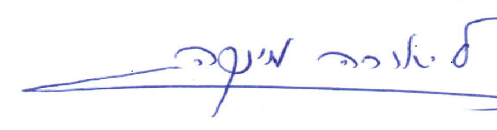 ליאורה מינקה